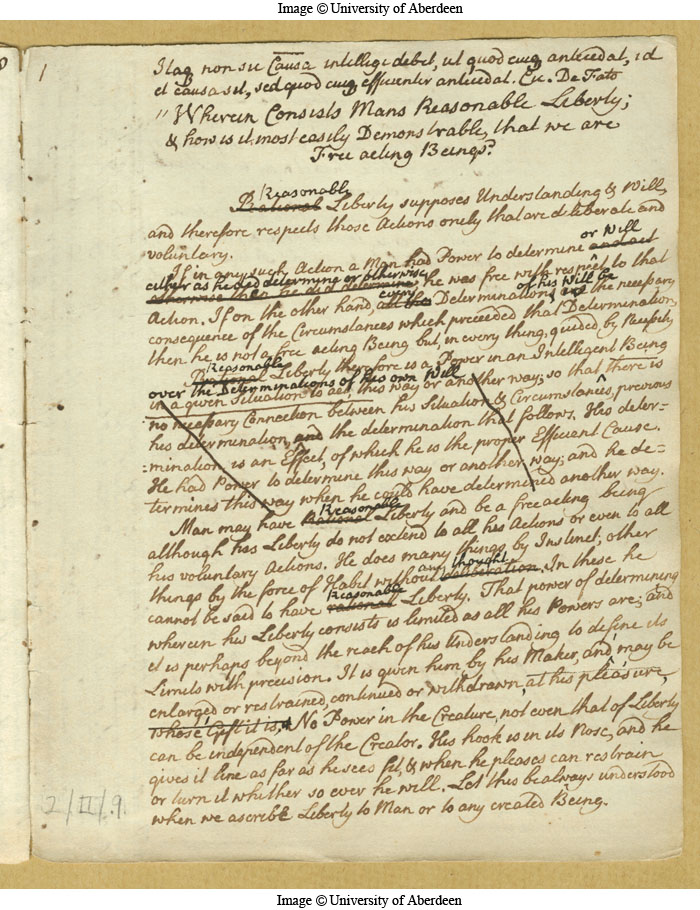 Image © University of Aberdeen
1
Itaq non sic Causa intelligi debet, ut quod cuiq antecedat, id
ei causa sit, sed quod cuiq efficienter antecedat. Cic. De Fato
" Wherein Consists Mans Reasonable Liberty;
& how is it most easily Demonstrable, that we are
Free acting Beings?
Reasonable
Rational Liberty supposes Understanding & Will,
and therefore respects those Actions onely that are deliberate and
voluntary.
or Will
If in any such Action a Man had Power to determine and act
either as he did determine or otherwise
otherwise than he did determine, he was free with respect to that
every of his Will be
Action. If on the other hand, all the Determinations are the necessary
consequence of the Circumstances which preceeded that Determination,
then he is not a free acting Being but, in every thing, guided by Necessity
Reasonable
Rational Liberty therefore is a Power in an Intelligent Being
over the Determinations of his own Will
in a given Situation to act this way or another way; so that there is
no necessary Connection between his Situation & Circumstances, previous
his determination, and the determination that follows. His deter-
:mination is an Effect, of which he is the proper Efficient Cause.
He had Power to determine this way or another way; and he de-
termines this way when he could have determined another way.
Reasonable
Man may have Rational Liberty and be a free acting being
although his Liberty do not extend to all his Actions or even to all
his voluntary Actions. He does many things by Instinct, other
any thought
things by the force of Habit without deliberation. In these he
Reasonable
cannot be said to have rational Liberty. That power of determining
wherein his Liberty consists is limited as all his Powers are; and
it is perhaps beyond the reach of his Understanding to define its
Limits with precision. It is given him by his Maker, and may be
enlarged or restrained, continued or withdrawn, at his pleasure,
whose Gift it is, No Power in the Creature, not even that of Liberty
can be independent of the Creator. His hook is in its Nose, and he
gives it line as far as he sees fit, & when he pleases can restrain
or turn it whither so ever he will. Let this be always understood
when we ascribe Liberty to Man or to any created Being.
2/II/.9.
Image © University of Aberdeen